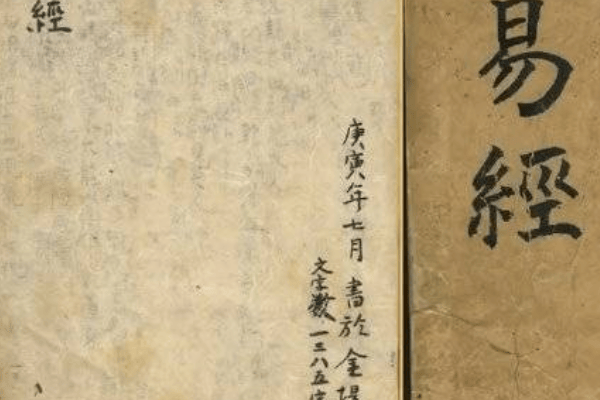 易經
庚寅年七月 書於金堤
文字數一三八五字
經